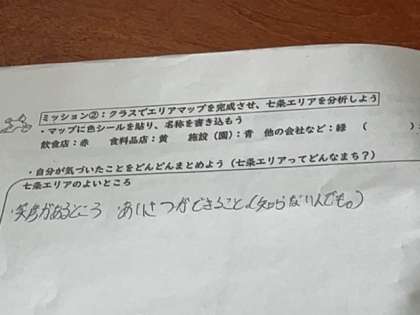 ミッション②：クラスでエリアマップを完成させ、七条エリアを分析しよう
・マップに色シールを貼り、名称を書き込もう
飲食店：赤　食料品店：黄　施設（園）：青　他の会社など：緑　（　　）
・自分が気づいたことをどんどんまとめよう（七条エリアってどんなまち？）
七条エリアのよいところ
・笑顔があるところ　・あいさつができること。（知らない人でも。）